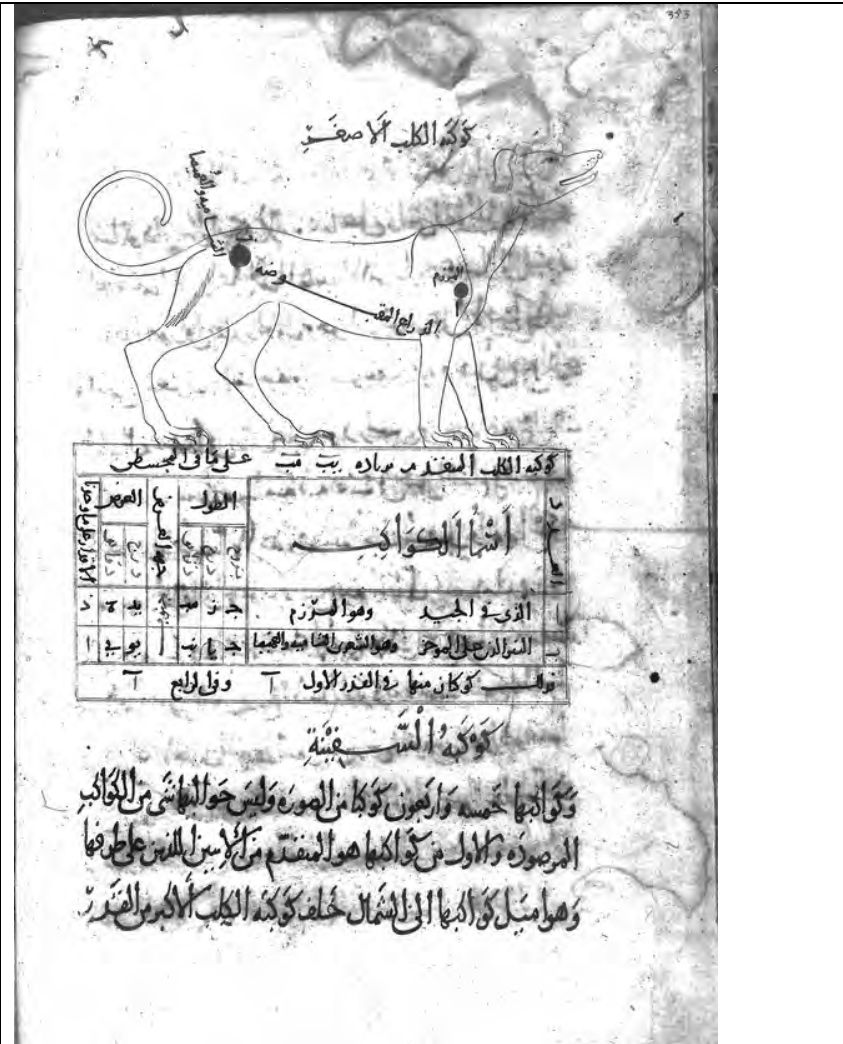 353
كوكبة الكلب الاصغر
الشاميه والغميصا
المرزم
الذراع المقبوضه
كوكبة الكلب المتقدم مـ زياده يب مب على ما في المجسطى
العدد
أسما الكواكب
الطول
جهة العرض
العرض
بروج
درج
دقايق
درج
دقايق
ا الذي في الجيد وهو المرزم ج ز د
ب النير الذي على الموخر وهو الشعرى الشاميه والغميصا ج يا نب يو ي ا
فذلك كوكبان منها في القدر الاول آ وفي الرابع آ
كوكبة السفينة
وكواكبها خمسه واربعون كوكبا من الصورة وليس حواليها شى من الكواكب
المرصوده والاول من كواكبها هو المتقدم من الاسين اللذين على طرفها
وهو اميل كواكبها الى الشمال خلف كوكبة الكلب الاكبر من القدر